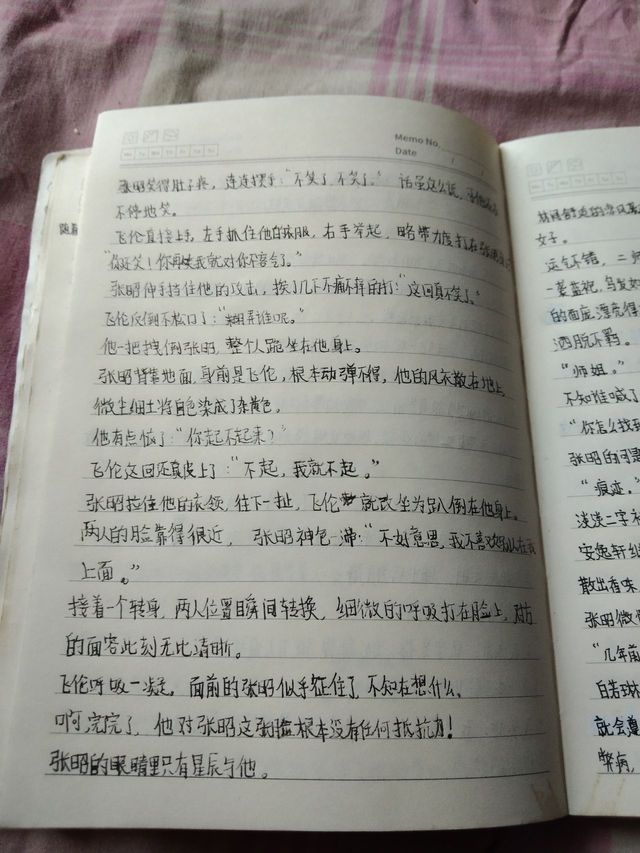 Memo No.
Date / /
张昭笑得肚子疼，连连摆手：“不笑了，不笑了。” 话虽这么说，
不停地笑。
飞伦直接上手，左手抓住他的衣服，右手举起，略带力度打在张昭
“你还笑！你再笑我就对你不客气了。”
张昭伸手挡住他的攻击，挨了几下不痛不痒的打：“这回真不笑了。”
飞伦反倒不松口了：“糊弄谁呢。”
他一把拽倒张昭，整个人跪坐在他身上。
张昭背靠地面，身前是飞伦，根本动弹不得，他的风衣散在地上，
微尘细土将白色染成了杂黄色。
他有点恼了：“你起不起来？”
飞伦这回还真皮上了：“不起，我就不起。”
张昭拉住他的衣领，往下一扯，飞伦就改坐为趴倒在他身上。
两人的脸靠得很近，张昭神色一滞：“不好意思，我不喜欢别人在我
上面。”
接着一个转身，两人位置瞬间转换，细微的呼吸打在脸上，对方
的面容此刻无比清晰。
飞伦呼吸一凝。面前的张昭似乎怔住了，不知在想什么。
啊，完完了，他对张昭这张脸根本没有任何抵抗力！
张昭的眼睛里只有星辰与他。
女子。
运气不错，二师
的面庞漂亮得
洒脱不羁。
“师姐。”
不知谁喊了
“你怎么找到
张昭的问是
“痕迹。”
淡淡二字
安逸轩
散出香味
张昭微
“几年前
白若琳
就会遵
弊病，